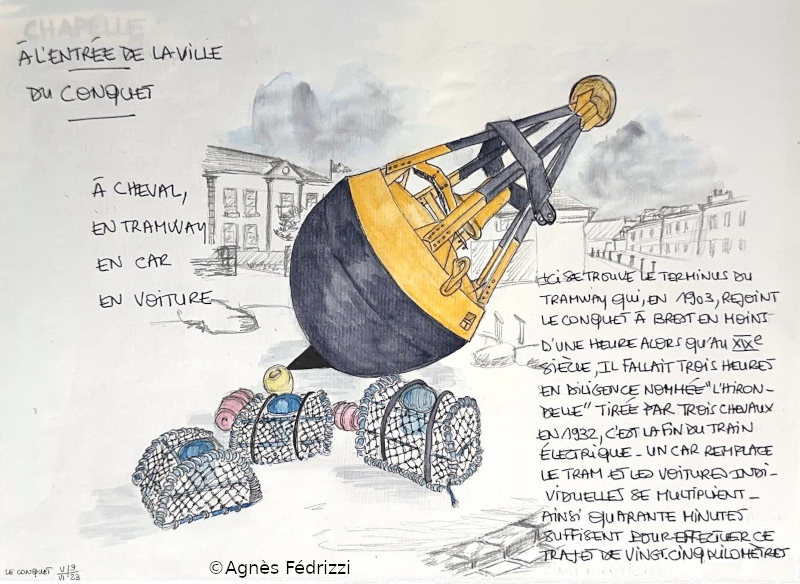 CHAPELLE
À L'ENTRÉE DE LA VILLE
DU CONQUET
À CHEVAL,
EN TRAMWAY
EN CAR
EN VOITURE
ICI SE TROUVE LE TERMINUS DU
TRAMWAY QUI, EN 1903, REJOINT
LE CONQUET À BREST EN MOINS
D'UNE HEURE ALORS QU'AU XIXe
SIÈCLE, IL FALLAIT TROIS HEURES
EN DILIGENCE NOMMÉE "L'HIRON-
DELLE" TIRÉE PAR TROIS CHEVAUX
EN 1932, C'EST LA FIN DU TRAIN
ÉLECTRIQUE - UN CAR REMPLACE
LE TRAM ET LES VOITURES INDI-
VIDUELLES SE MULTIPLIENT -
AINSI QUARANTE MINUTES
SUFFISENT POUR EFFECTUER CE
TRAJET DE VINGT-CINQ KILOMÈTRES
LE CONQUET V/9
VI/23
©Agnès Fédrizzi